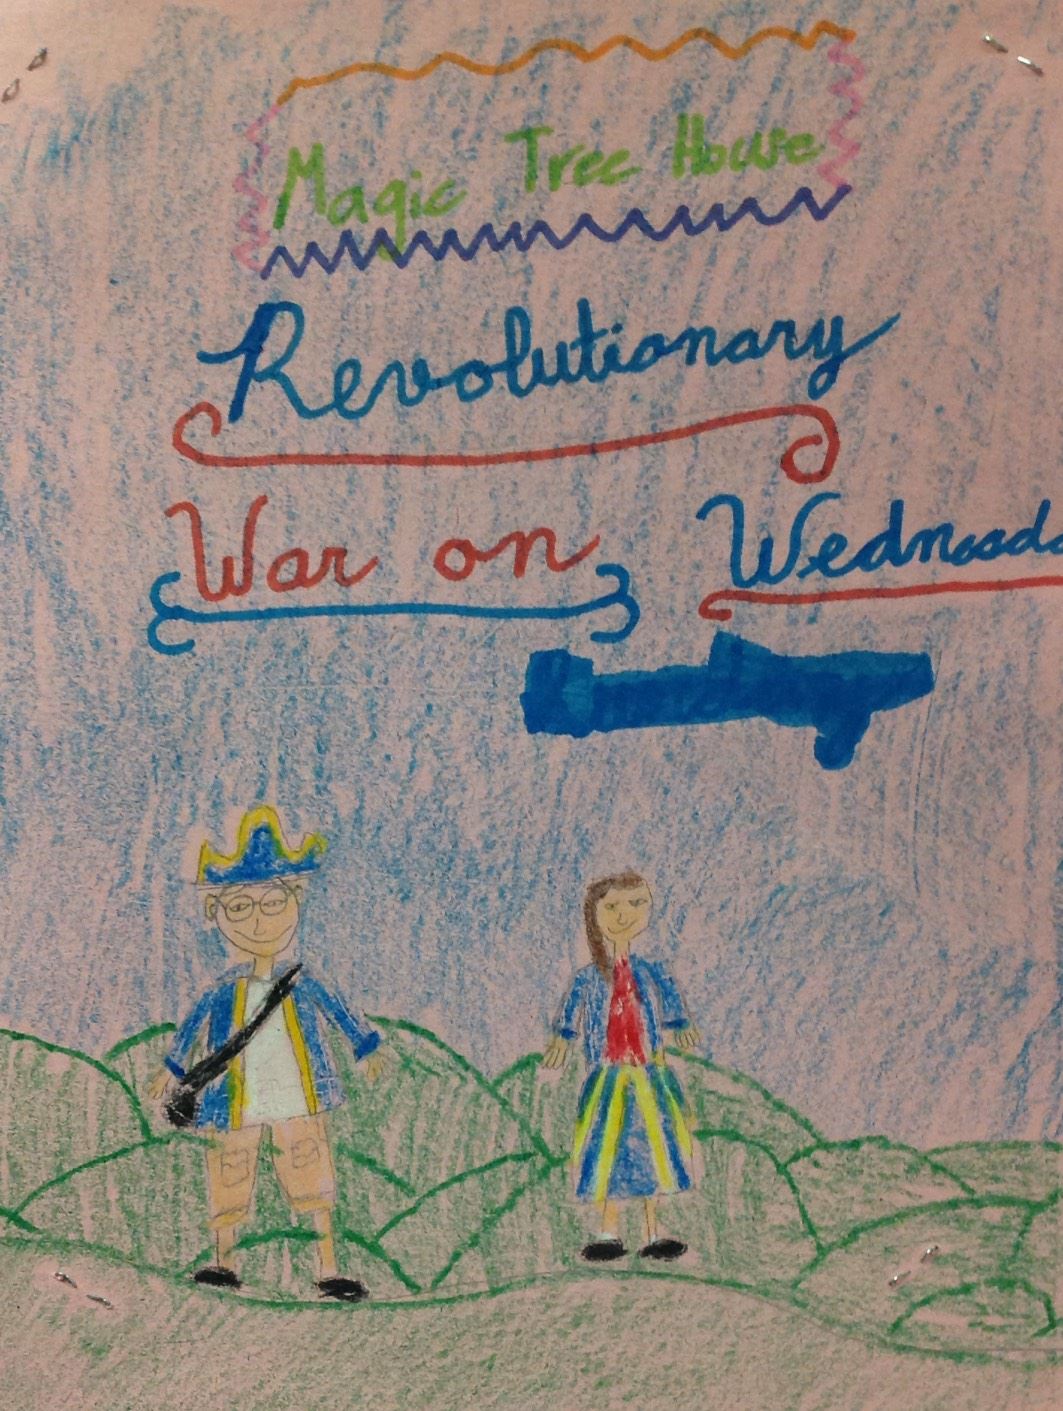 Magic Tree House
Revolutionary
War on Wednesda